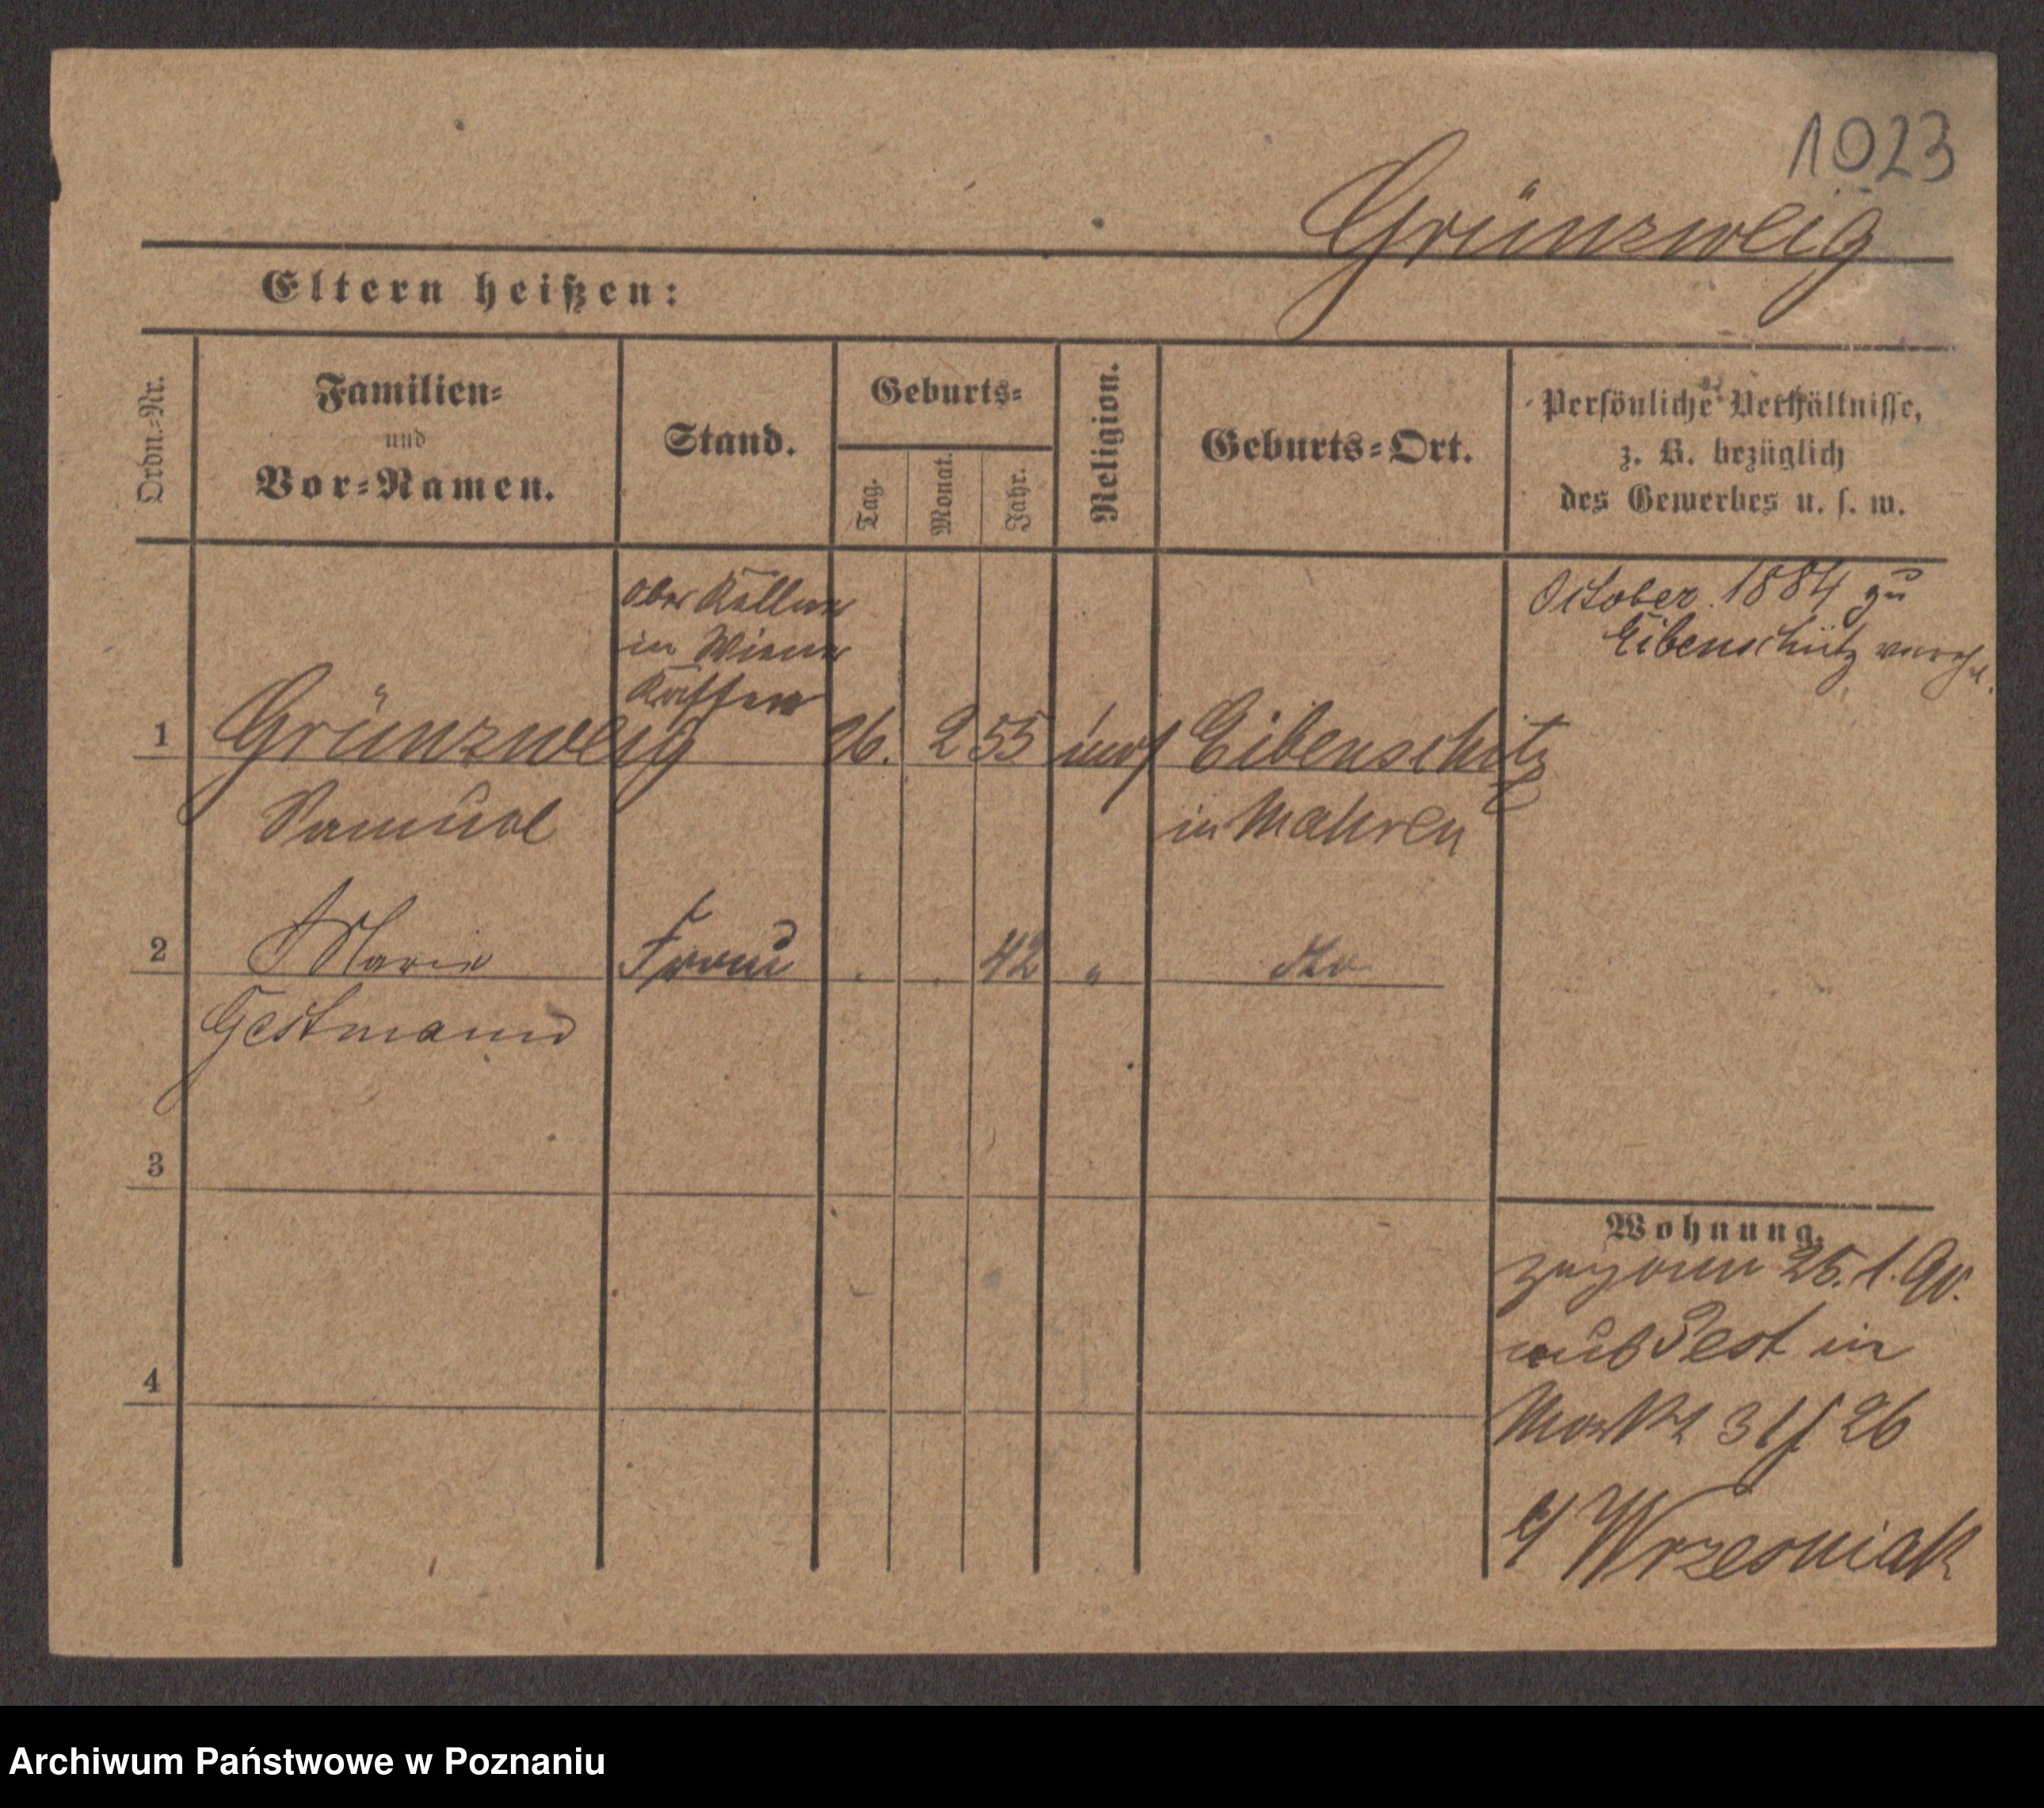 1023
Grünzweig
Eltern heißen:
Ordn.-Nr.
Familien-
und
Vor-Namen.
Stand.
Geburts-
Tag.
Monat.
Jahr.
Religion.
Geburts-Ort.
Persönliche Verhältnisse,
z. B. bezüglich
des Gewerbes u. s. w.
Ober Kellner
in Wiener
October 1884 zu
Eibenschütz
1 Grünzweig 26. 2 55 Eibenschitz
Samuel in Mähren
2 Marie Frau . . 42 " dto
Gestmann
3
4
Wohnung.
25. 1. 90.
aus Pest in
Markt 31 f 26
b/ Wrzesniak
Archiwum Państwowe w Poznaniu